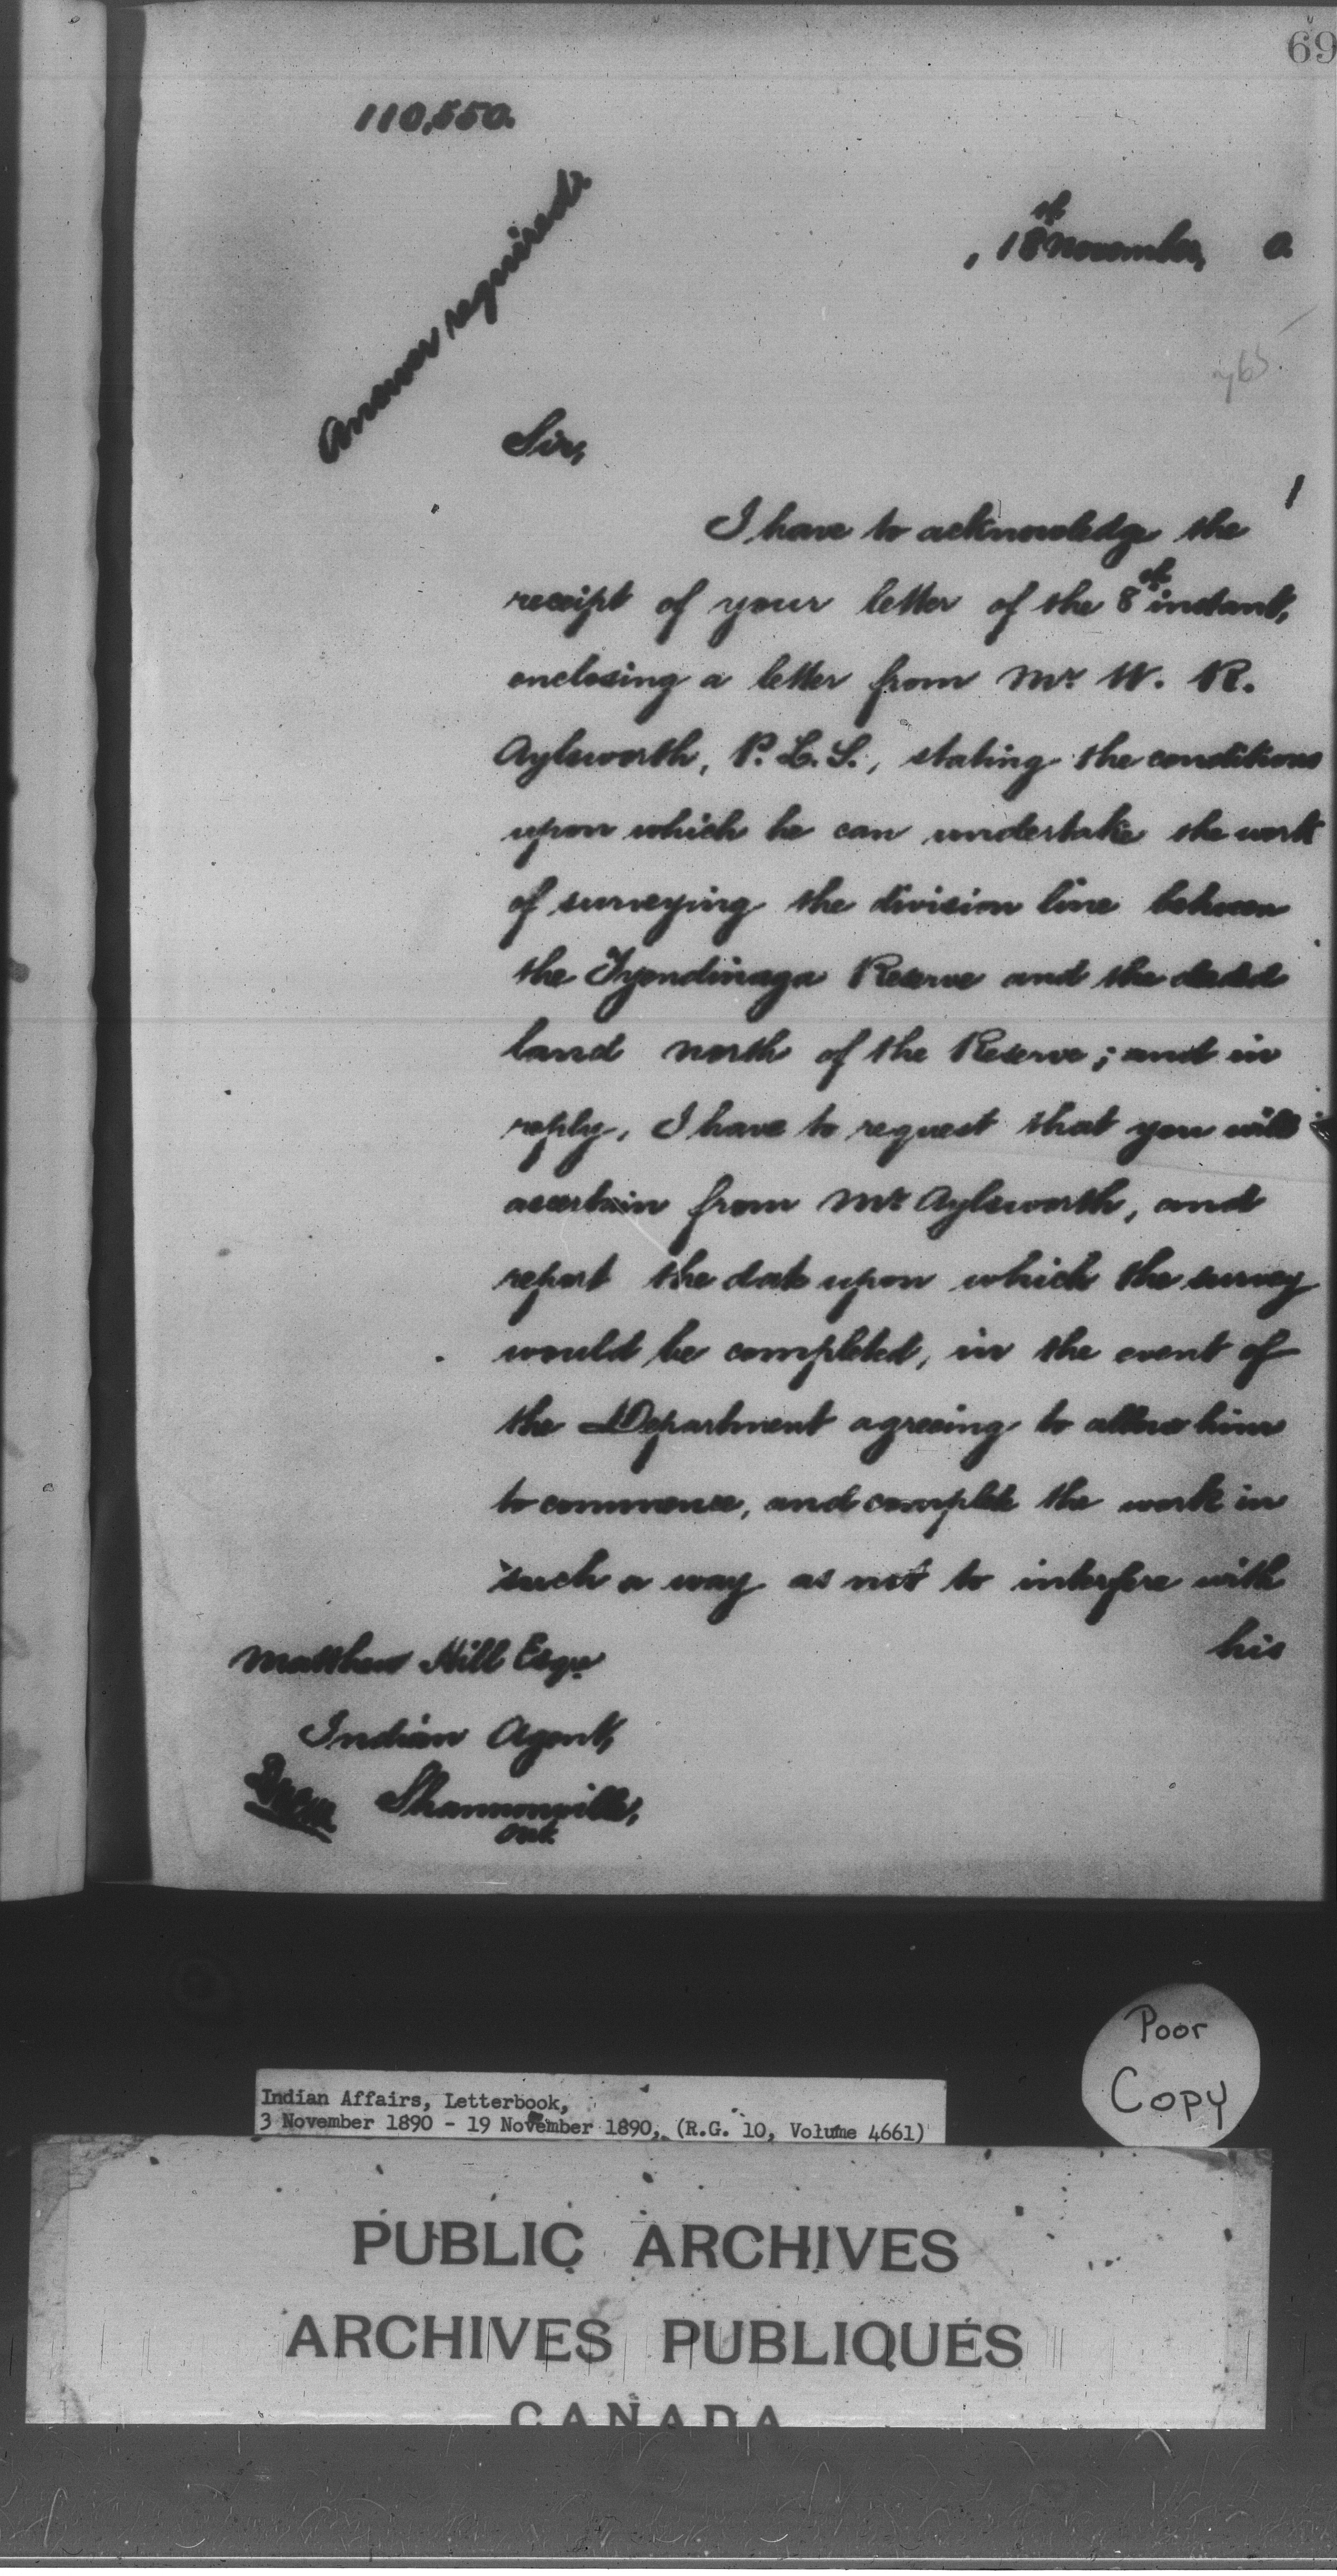 69
110,550.
Answer required.
, 18th November, 0.
Sir,
I have to acknowledge the
receipt of your letter of the 8th instant,
enclosing a letter from Mr. W. R.
Aylsworth, P. L. S., stating the conditions
upon which he can undertake the work
of surveying the division line between
the Tyendinaga Reserve and the deeded
land north of the Reserve; and in
reply, I have to request that you will
ascertain from Mr Aylsworth, and
report the date upon which the survey
would be completed, in the event of
the Department agreeing to allow him
to commence, and complete the work in
such a way as not to interfere with
his
Matthew Hill Esqre
Indian Agent,
Shannonville,
Ont.
Poor
Copy
Indian Affairs, Letterbook,
3 November 1890 - 19 November 1890, (R.G. 10, Volume 4661)
PUBLIC ARCHIVES
ARCHIVES PUBLIQUES
CANADA